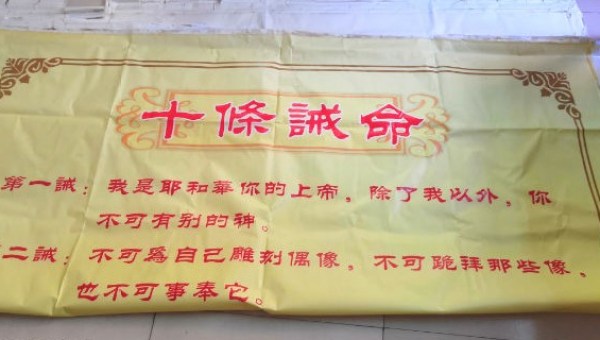 十條誡命
第一誡：我是耶和華你的上帝，除了我以外，你
不可有别的神。
二誡：不可為自己雕刻偶像，不可跪拜那些像，
也不可事奉它。